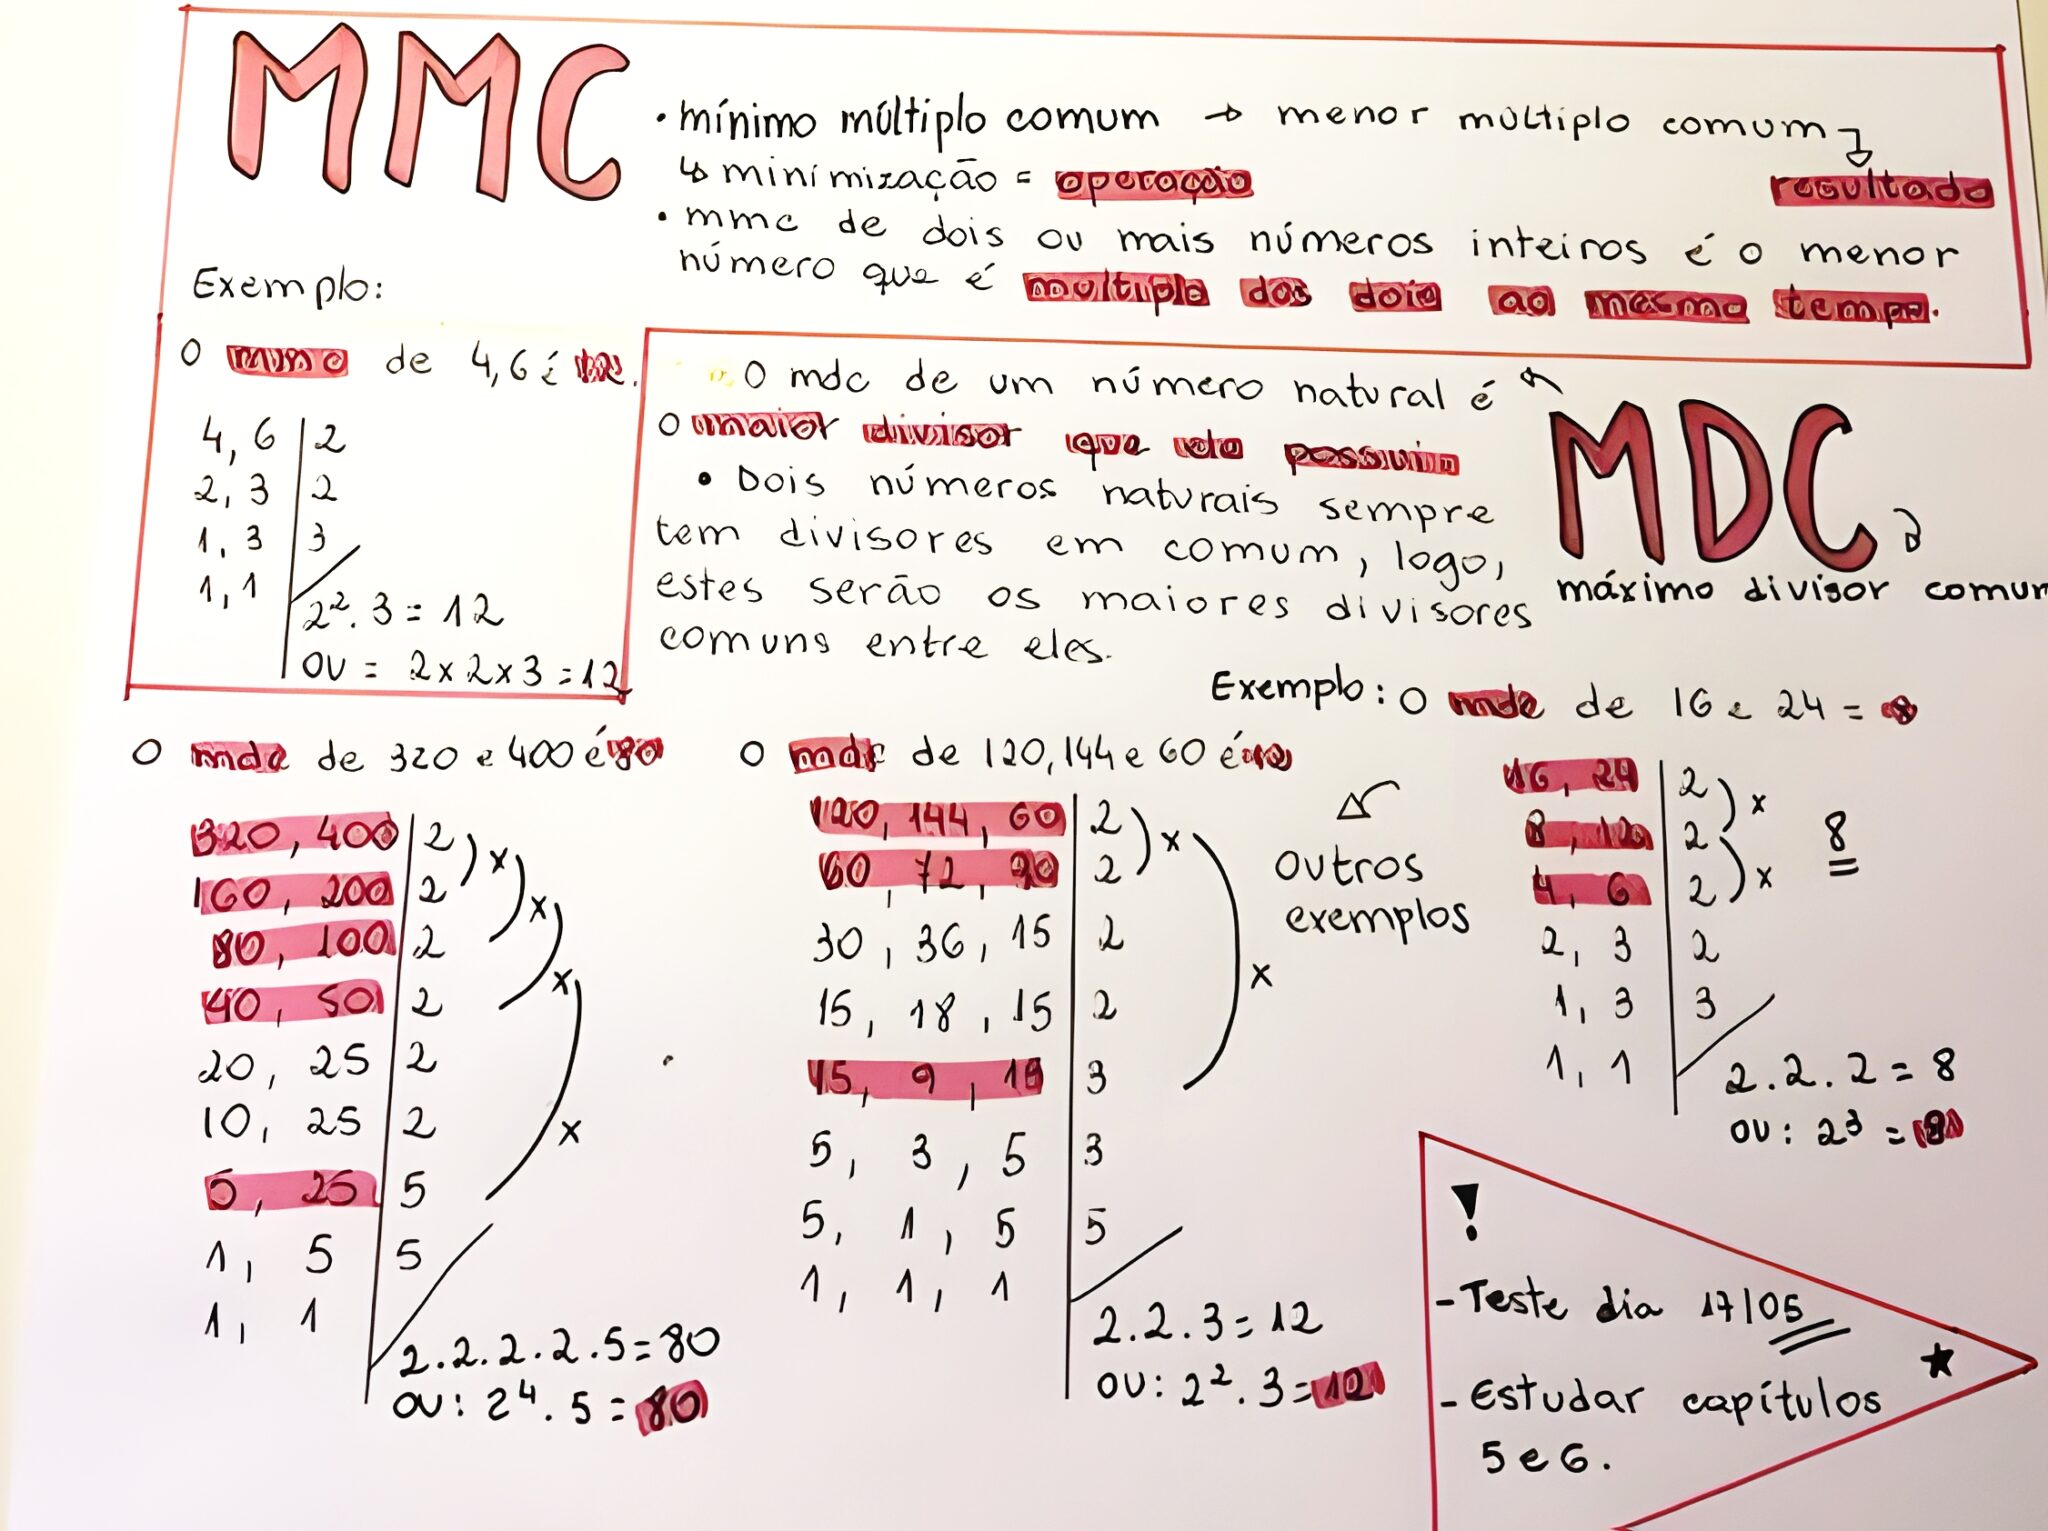 MMC
• mínimo múltiplo comum → menor multiplo comum
↳ minimização = operação
resultado
• mmc de dois ou mais números inteiros é o menor
número que é multiplo dos dois ao mesmo tempo.
Exemplo:
O mmc de 4,6 é 12.
4, 6 | 2
2, 3 | 2
1, 3 | 3
1, 1
2². 3 = 12
OU = 2x2x3=12
MDC
máximo divisor comum
O mdc de um número natural é
o maior divisor que ele possuir
• Dois números naturais sempre
tem divisores em comum, logo,
estes serão os maiores divisores
comuns entre eles.
Exemplo: O mdc de 16 e 24 = 8
16, 24 | 2
8, 12 | 2 x
4, 6 | 2 x
8
2, 3 | 2
1, 3 | 3
1, 1
2.2.2 = 8
OU: 2³ = 8
outros
exemplos
O mdc de 320 e 400 é 80
320, 400 | 2
160, 200 | 2 x
80, 100 | 2 x
40, 50 | 2 x
20, 25 | 2
10, 25 | 2 x
5, 25 | 5
1, 5 | 5
1, 1
2.2.2.2.5=80
OU: 2⁴. 5 = 80
O mdc de 120,144 e 60 é 12
120, 144, 60 | 2
60, 72, 30 | 2 x
30, 36, 15 | 2
15, 18, 15 | 2 x
15, 9, 15 | 3
5, 3, 5 | 3
5, 1, 5 | 5
1, 1, 1
2.2.3=12
OU: 2². 3=12
!
- Teste dia 17/05
- Estudar capítulos
5 e 6.